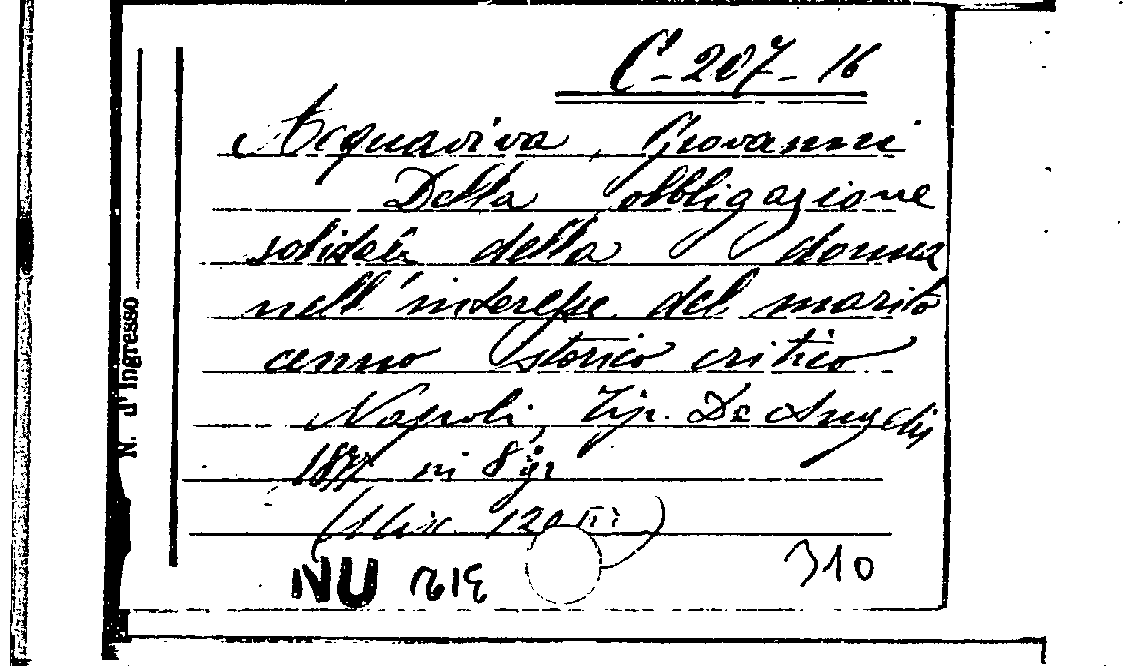 C-207-16
Acquaviva, Giovanni
Della obbligazione
solidale della donna
nell'interesse del marito
cenno storico critico
Napoli, Tip. De Angelis
1877 in 8° gr
(Mix. 120
NU
310
N. d'Ingresso